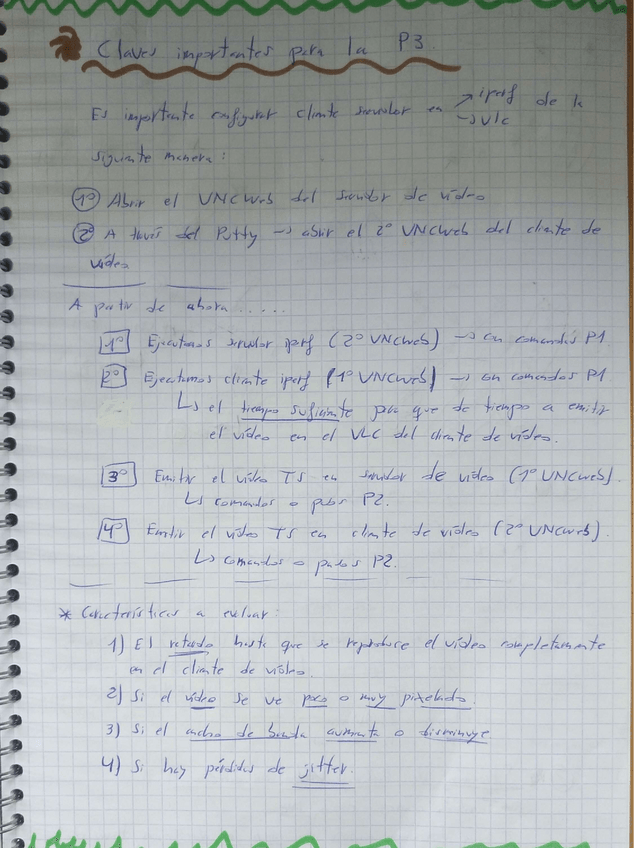 Claves importantes para la P3.
Es importante configurar cliente servidor en → iperf de la
→ VLC
siguiente manera:
1º Abrir el VNCWeb del servidor de vídeo
2º A través del Putty → abrir el 2º VNCWeb del cliente de
vídeo
A partir de ahora.....
1º Ejecutamos servidor iperf (2º VNCWeb) → con comandos P1
2º Ejecutamos cliente iperf (1º VNCWeb) → con comandos P1
↳ el tiempo suficiente para que de tiempo a emitir
el vídeo en el VLC del cliente de vídeo.
3º Emitir el vídeo TS en servidor de vídeo (1º VNCWeb).
↳ comandos o pasos P2.
4º Emitir el vídeo TS en cliente de vídeo (2º VNCWeb).
↳ comandos o pasos P2.
* Características a evaluar:
1) El retardo hasta que se reproduce el vídeo completamente
en el cliente de vídeo.
2) Si el vídeo se ve poco o muy pixelado.
3) Si el ancho de banda aumenta o disminuye
4) Si hay pérdidas de jitter.